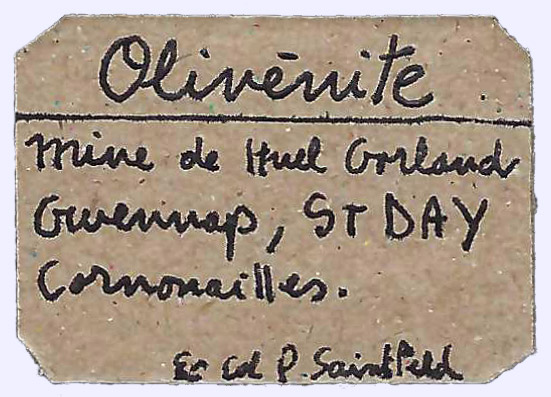 Olivénite
Mine de Huel Gorland
Gwennap, ST DAY
Cornouailles.
Ex Col P. Saint Peld